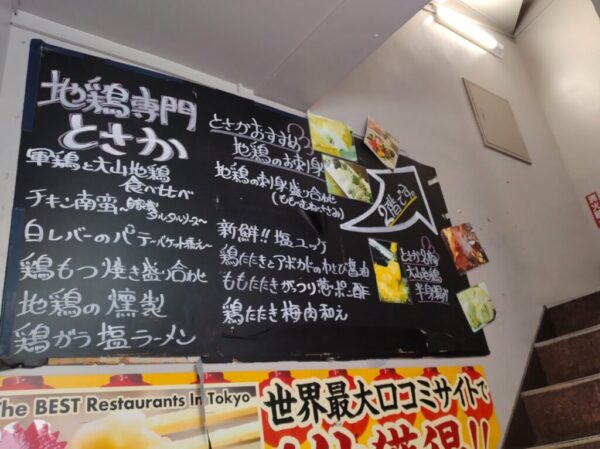 地鶏専門
とさか
軍鶏と大山地鶏
食べ比べ
チキン南蛮〜自家製タルタルソース〜
白レバーのパテ〜バケット添え〜
鶏もつ焼き盛り合わせ
地鶏の燻製
鶏ガラ塩ラーメン
とさかおすすめ
地鶏のお刺身
地鶏の刺身盛り合わせ
(もも・むね・ささみ)
新鮮!!塩ユッケ
鶏たたきとアボカドのわさび醤油
ももたたきがっつり葱ポン酢
鶏たたき梅肉和え
2階です。
とさか名物
大山地鶏
半身揚げ
The BEST Restaurants In Tokyo
世界最大口コミサイトで
獲得!!